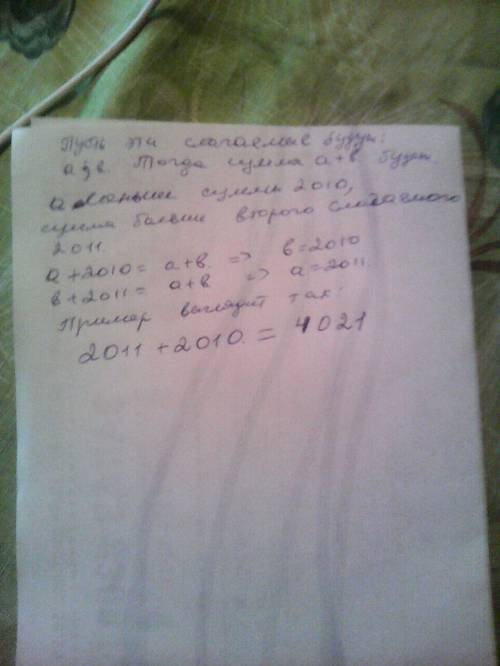 Пусть эти слагаемые будут:
а и в. Тогда сумма а+в будет.
а меньше суммы 2010,
сумма больше второго слагаемого
2011.
а+2010= а+в. => в=2010
в+2011= а+в => а=2011.
Пример выглядит так:
2011+2010.= 4021